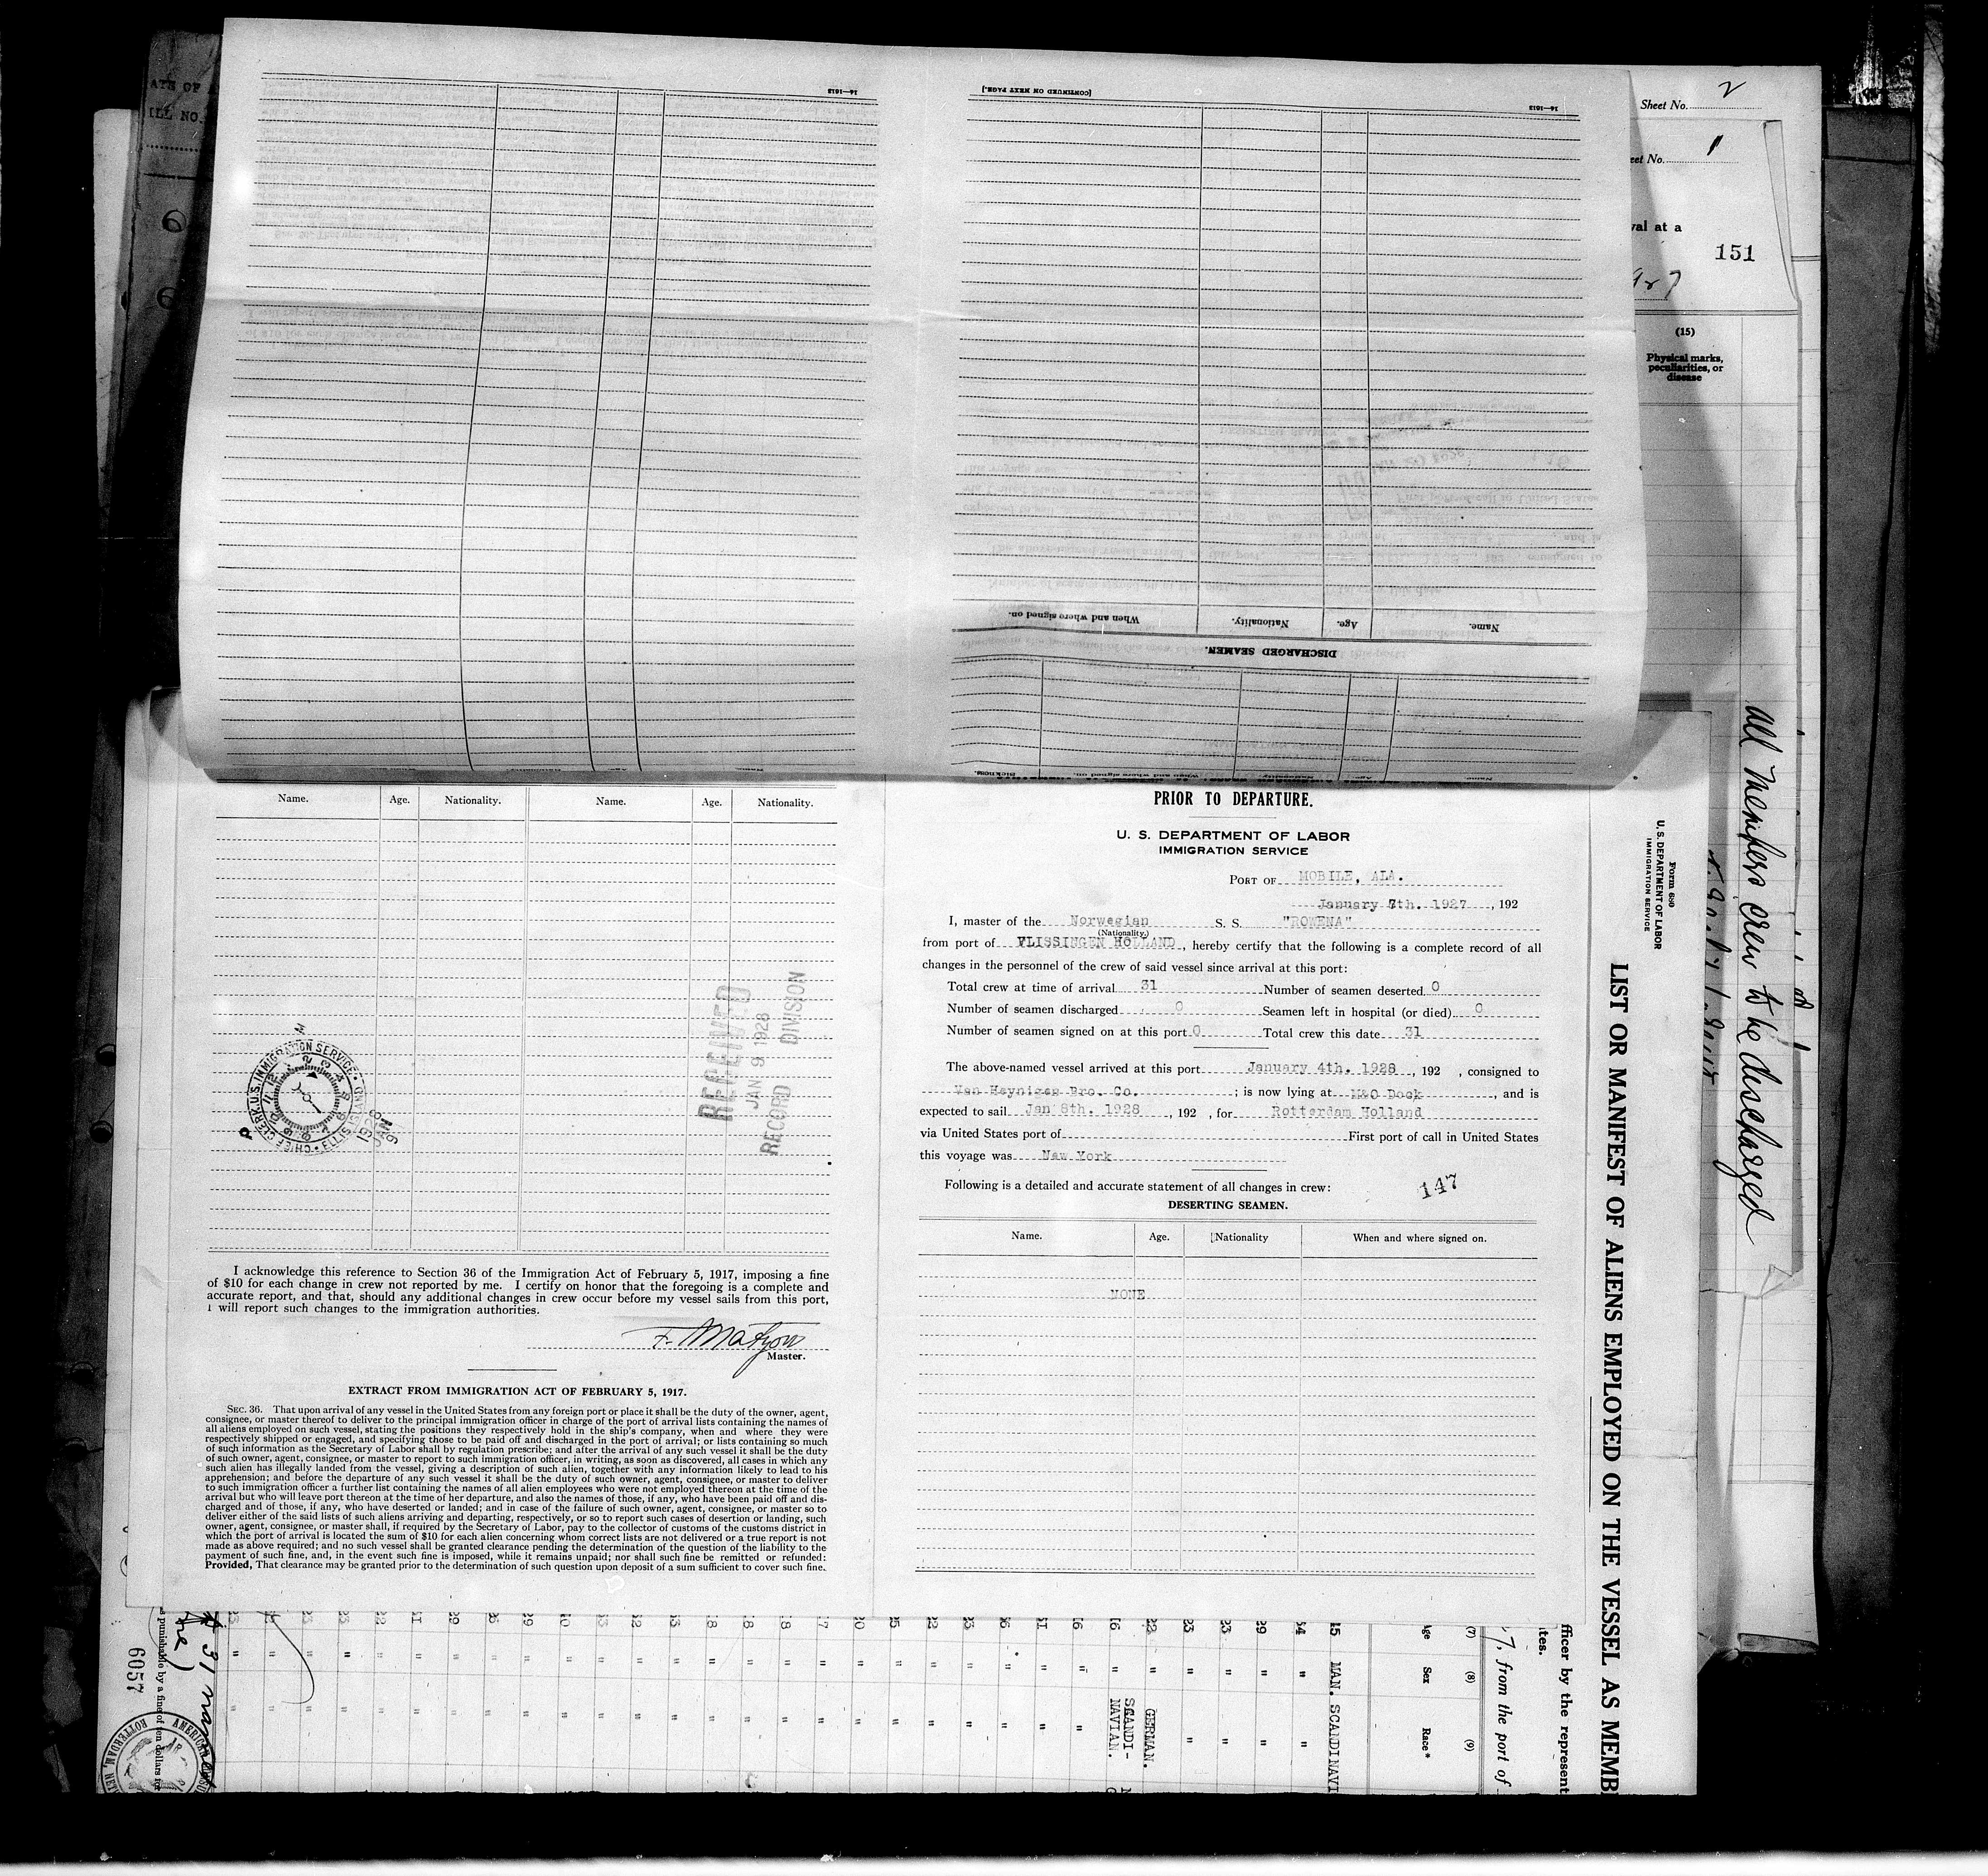 16—1613
[CONTINUED ON NEXT PAGE.]
16—1613
Name. Age. Nationality. When and where signed on.
DISCHARGED SEAMEN.
Name. Age. Nationality. When and where signed on. Sickness.
ATE OF
ILL NO.
Sheet No. 2
eet No. 1
val at a
151
927
(15)
Physical marks,
peculiarities, or
disease
Name. Age. Nationality. Name. Age. Nationality.
CHIEF CLERK U.S. IMMIGRATION SERVICE · ELLIS ISLAND
1928
JAN
9
P M
RECEIVED
JAN 9 1928
RECORD DIVISION
I acknowledge this reference to Section 36 of the Immigration Act of February 5, 1917, imposing a fine
of $10 for each change in crew not reported by me. I certify on honor that the foregoing is a complete and
accurate report, and that, should any additional changes in crew occur before my vessel sails from this port,
I will report such changes to the immigration authorities.
Master.
EXTRACT FROM IMMIGRATION ACT OF FEBRUARY 5, 1917.
SEC. 36. That upon arrival of any vessel in the United States from any foreign port or place it shall be the duty of the owner, agent,
consignee, or master thereof to deliver to the principal immigration officer in charge of the port of arrival lists containing the names of
all aliens employed on such vessel, stating the positions they respectively hold in the ship's company, when and where they were
respectively shipped or engaged, and specifying those to be paid off and discharged in the port of arrival; or lists containing so much
of such information as the Secretary of Labor shall by regulation prescribe; and after the arrival of any such vessel it shall be the duty
of such owner, agent, consignee, or master to report to such immigration officer, in writing, as soon as discovered, all cases in which any
such alien has illegally landed from the vessel, giving a description of such alien, together with any information likely to lead to his
apprehension; and before the departure of any such vessel it shall be the duty of such owner, agent, consignee, or master to deliver
to such immigration officer a further list containing the names of all alien employees who were not employed thereon at the time of the
arrival but who will leave port thereon at the time of her departure, and also the names of those, if any, who have been paid off and dis-
charged and of those, if any, who have deserted or landed; and in case of the failure of such owner, agent, consignee, or master so to
deliver either of the said lists of such aliens arriving and departing, respectively, or so to report such cases of desertion or landing, such
owner, agent, consignee, or master shall, if required by the Secretary of Labor, pay to the collector of customs of the customs district in
which the port of arrival is located the sum of $10 for each alien concerning whom correct lists are not delivered or a true report is not
made as above required; and no such vessel shall be granted clearance pending the determination of the question of the liability to the
payment of such fine, and, in the event such fine is imposed, while it remains unpaid; nor shall such fine be remitted or refunded:
Provided, That clearance may be granted prior to the determination of such question upon deposit of a sum sufficient to cover such fine.
PRIOR TO DEPARTURE.
U. S. DEPARTMENT OF LABOR
IMMIGRATION SERVICE
PORT OF MOBILE, ALA.
January 7th. 1927, 192
I, master of the Norwegian S. S. "ROWENA"
(Nationality)
from port of VLISSINGEN HOLLAND, hereby certify that the following is a complete record of all
changes in the personnel of the crew of said vessel since arrival at this port:
Total crew at time of arrival 31 Number of seamen deserted 0
Number of seamen discharged 0 Seamen left in hospital (or died) 0
Number of seamen signed on at this port 0 Total crew this date 31
The above-named vessel arrived at this port January 4th. 1928, 192 , consigned to
Van Heynigen Bro. Co. ; is now lying at M&O Dock, and is
expected to sail Jan 8th. 1928, 192 , for Rotterdam Holland
via United States port of First port of call in United States
this voyage was New York
Following is a detailed and accurate statement of all changes in crew: 147
DESERTING SEAMEN.
Name. Age. Nationality When and where signed on.
NONE
Form 680
U. S. DEPARTMENT OF LABOR
IMMIGRATION SERVICE
LIST OR MANIFEST OF ALIENS EMPLOYED ON THE VESSEL AS MEMB
all Members crew to be discharged
fficer by the represent
tes.
7, from the port of
(7) (8) (9)
ge Sex Race*
MAN. SCANDINAVI
GERMAN.
SCANDI-
NAVIAN.
31
s punishable by a fine of ten dollars for
6057
AMERICAN
ROTTERDAM, NE